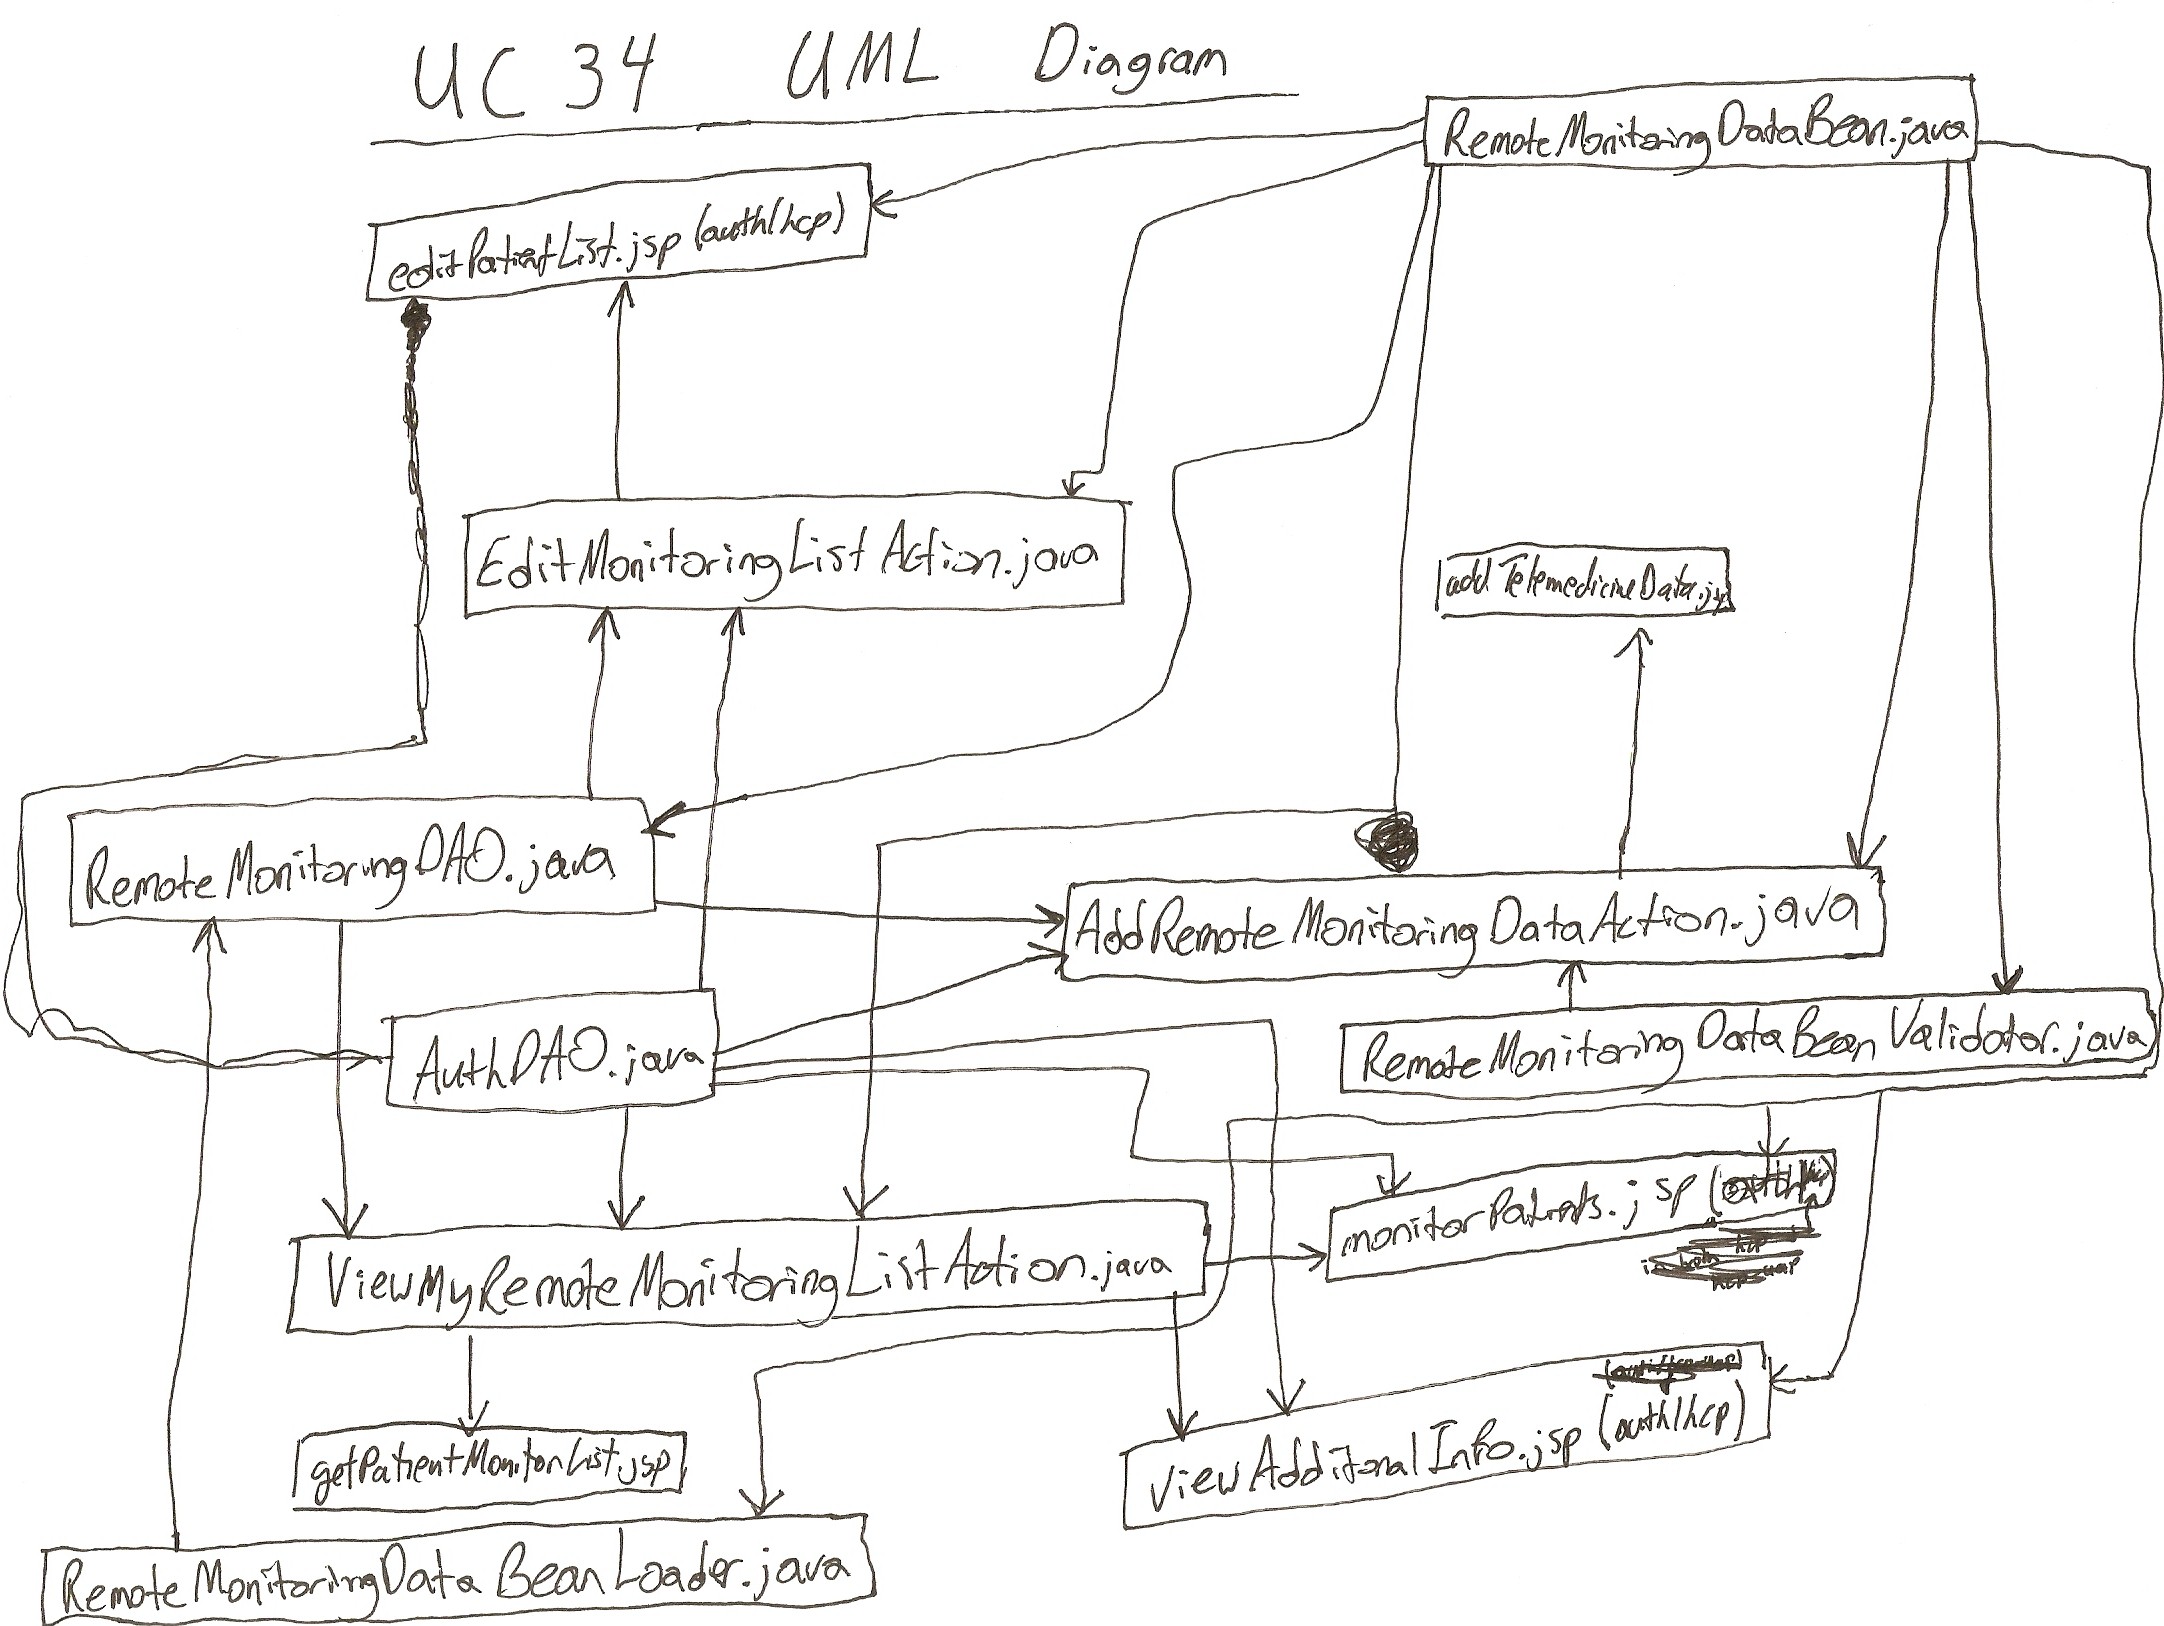 UC 34 UML Diagram
RemoteMonitoringDataBean.java
editPatientList.jsp (auth/hcp)
EditMonitoringListAction.java
addTelemedicineData.jsp
RemoteMonitoringDAO.java
AddRemoteMonitoringDataAction.java
AuthDAO.java
RemoteMonitoringDataBeanValidator.java
monitorPatients.jsp
ViewMyRemoteMonitoringListAction.java
viewAdditonalInfo.jsp (auth/hcp)
getPatientMonitorList.jsp
RemoteMonitoringDataBeanLoader.java